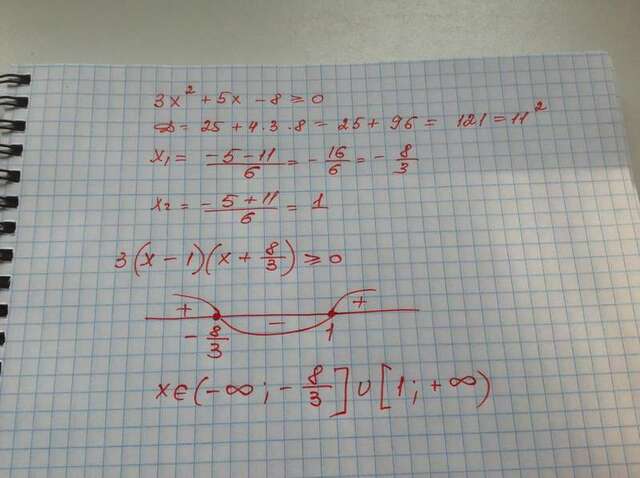 3x² + 5x - 8 ≥ 0
D = 25 + 4·3·8 = 25 + 96 = 121 = 11²
x₁ = (-5-11)/6 = -16/6 = -8/3
x₂ = (-5+11)/6 = 1
3(x-1)(x+8/3) ≥ 0
+ - +
-8/3 1
x∈(-∞; -8/3]∪[1; +∞)